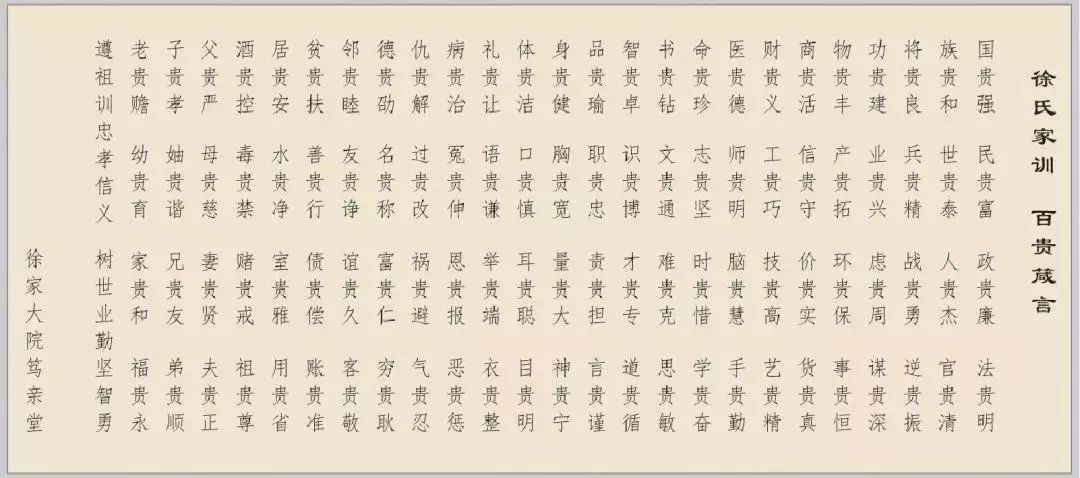 徐氏家训 百贵箴言
国贵强 民贵富 政贵廉 法贵明
族贵和 世贵泰 人贵杰 官贵清
将贵良 兵贵精 战贵勇 逆贵振
功贵建 业贵兴 虑贵周 谋贵深
物贵丰 产贵拓 环贵保 事贵恒
商贵活 信贵守 价贵实 货贵真
财贵义 工贵巧 技贵高 艺贵精
医贵德 师贵明 脑贵慧 手贵勤
命贵珍 志贵坚 时贵惜 学贵奋
书贵钻 文贵通 难贵克 思贵敏
智贵卓 识贵博 才贵专 道贵循
品贵瑜 职贵忠 责贵担 言贵谨
身贵健 胸贵宽 量贵大 神贵宁
体贵洁 口贵慎 耳贵聪 目贵明
礼贵让 语贵谦 举贵端 衣贵整
病贵治 冤贵伸 恩贵报 恶贵惩
仇贵解 过贵改 祸贵避 气贵忍
德贵劭 名贵称 富贵仁 穷贵耿
邻贵睦 友贵诤 谊贵久 客贵敬
贫贵扶 善贵行 债贵偿 账贵准
居贵安 水贵净 室贵雅 用贵省
酒贵控 毒贵禁 赌贵戒 祖贵尊
父贵严 母贵慈 妻贵贤 夫贵正
子贵孝 妯贵谐 兄贵友 弟贵顺
老贵赡 幼贵育 家贵和 福贵永
遵祖训忠孝信义 树世业勤坚智勇
徐家大院笃亲堂